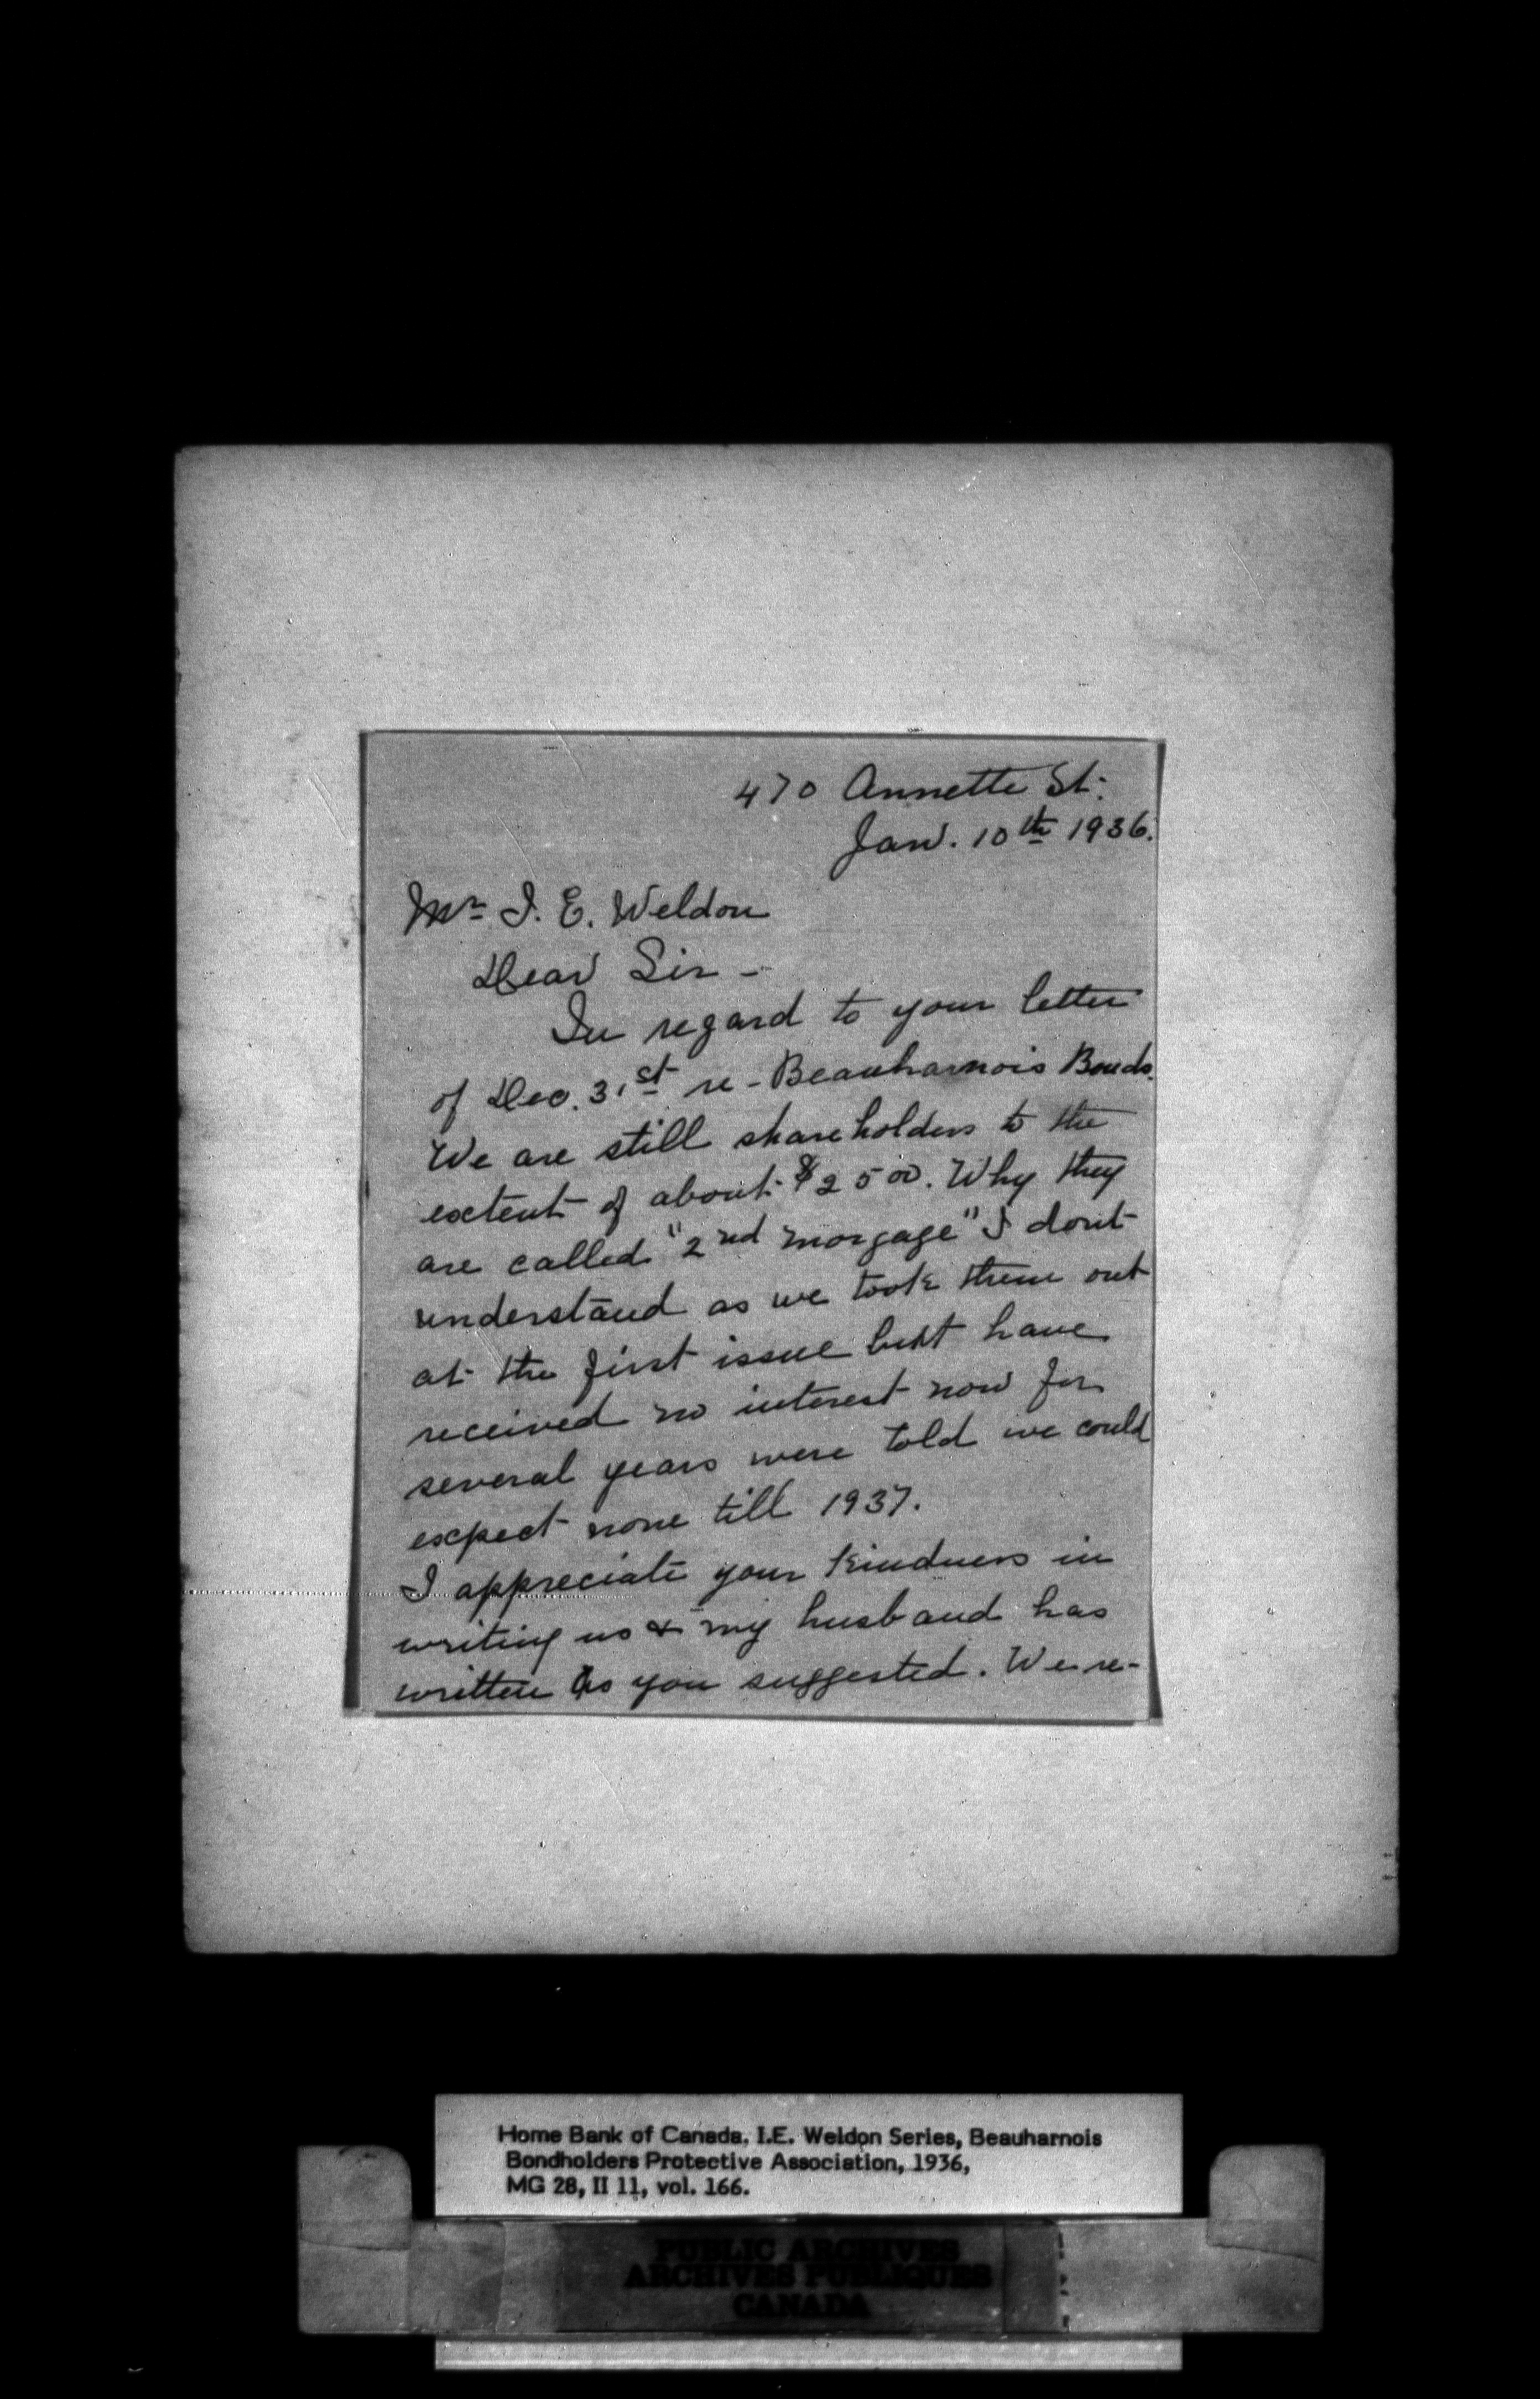 470 Annette St.
Jan. 10th 1936.
Mr I. E. Weldon
Dear Sir -
In regard to your letter
of Dec. 31st re - Beauharnois Bonds.
We are still shareholders to the
extent of about $2500. Why they
are called "2nd morgage" I dont
understand as we took them out
at the first issue but have
received no interest now for
several years were told we could
expect none till 1937.
I appreciate your kindness in
writing us & my husband has
written as you suggested. We re-
Home Bank of Canada, I.E. Weldon Series, Beauharnois
Bondholders Protective Association, 1936,
MG 28, II 11, vol. 166.
PUBLIC ARCHIVES
ARCHIVES PUBLIQUES
CANADA